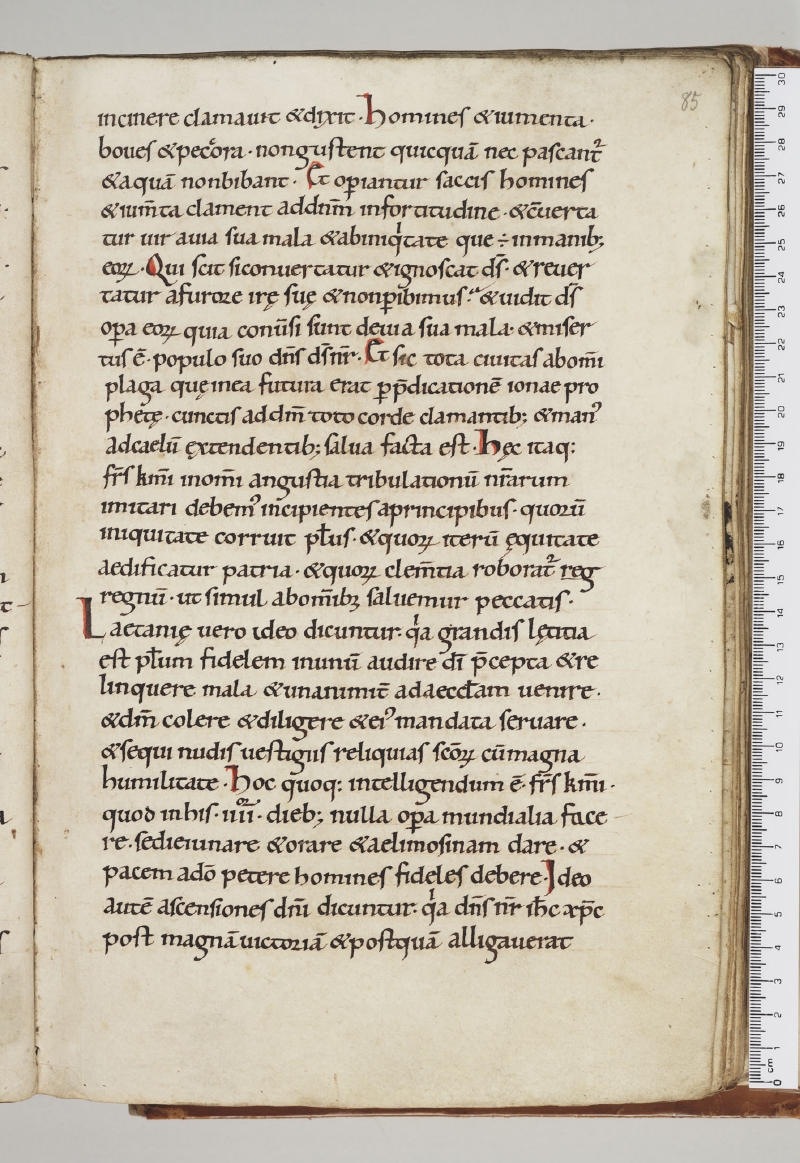 85
incinere clamauit &dixit · homines &iumenta ·
boues &pecora · nongustent quicquā nec pascant᷑
&aquā nonbibant · Et op̄iantur saccis homines
&ium̄ta clament addn̄m infortitudine · &c̄uerta
tur uir auia sua mala &abiniq̍tate que ÷ inmanib;
eoꝝ · Qui scit siconuertatur &ignoscat d̄s · &reuer
tatur afurore irę suę &nonꝑibimus · &uidit d̄s
oꝑa eoꝝ quia conu̅si sunt deuia sua mala · &miser
tus ē · populo suo dn̄s d̄s nr̄ · Et sic tota ciuitas abom̄i
plaga quęinea futura erat ꝑp̄dicationē ionae pro
phetę · cunctis addm̄ toto corde clamantib; &man᾿
adcaelū ęxtendentib; salua facta est · hęc itaq:
fr̄s km̄i inom̄i angustia tribulationū nr̄arum
imitari debem᾿ incipientes aprincipibus · quorū
iniquitate corruit pl̄us · &quoꝝ iterū ęquitate
aedificatur patria · &quoꝝ clem̄tia roborat᷑ reg
regnū · ut simul abom̄ibꝫ saluemur peccatis ·
Laetanię uero ideo dicuntur · q̍a grandis lętitia
est pl̄um fidelem inunū audire dī p̄cepta &re
linquere mala &unanimit̄ adaeccl̄am uenire ·
&dm̄ colere &diligere &ei᾿ mandata seruare ·
&sequi nudis uestigiis reliquias sc̄oꝝ cūmagna
humilitate · hoc quoq: intelligendum ē · fr̄s km̄i ·
quod inhis · iiii · dieb; nulla oꝑa mundialia face
re · sedieiunare &orare &aelimosinam dare · &
pacem adō petere homines fideles debere · Ideo
autē ascensiones dn̄i dicuntur · q̍a dn̄s nr̄ ih̄c xp̄c
post magnā uictoriā &postquā alligauerat
30
29
28
27
26
25
24
23
22
21
20
19
18
17
16
15
14
13
12
11
10
9
8
7
6
5
4
3
2
1
cm
0